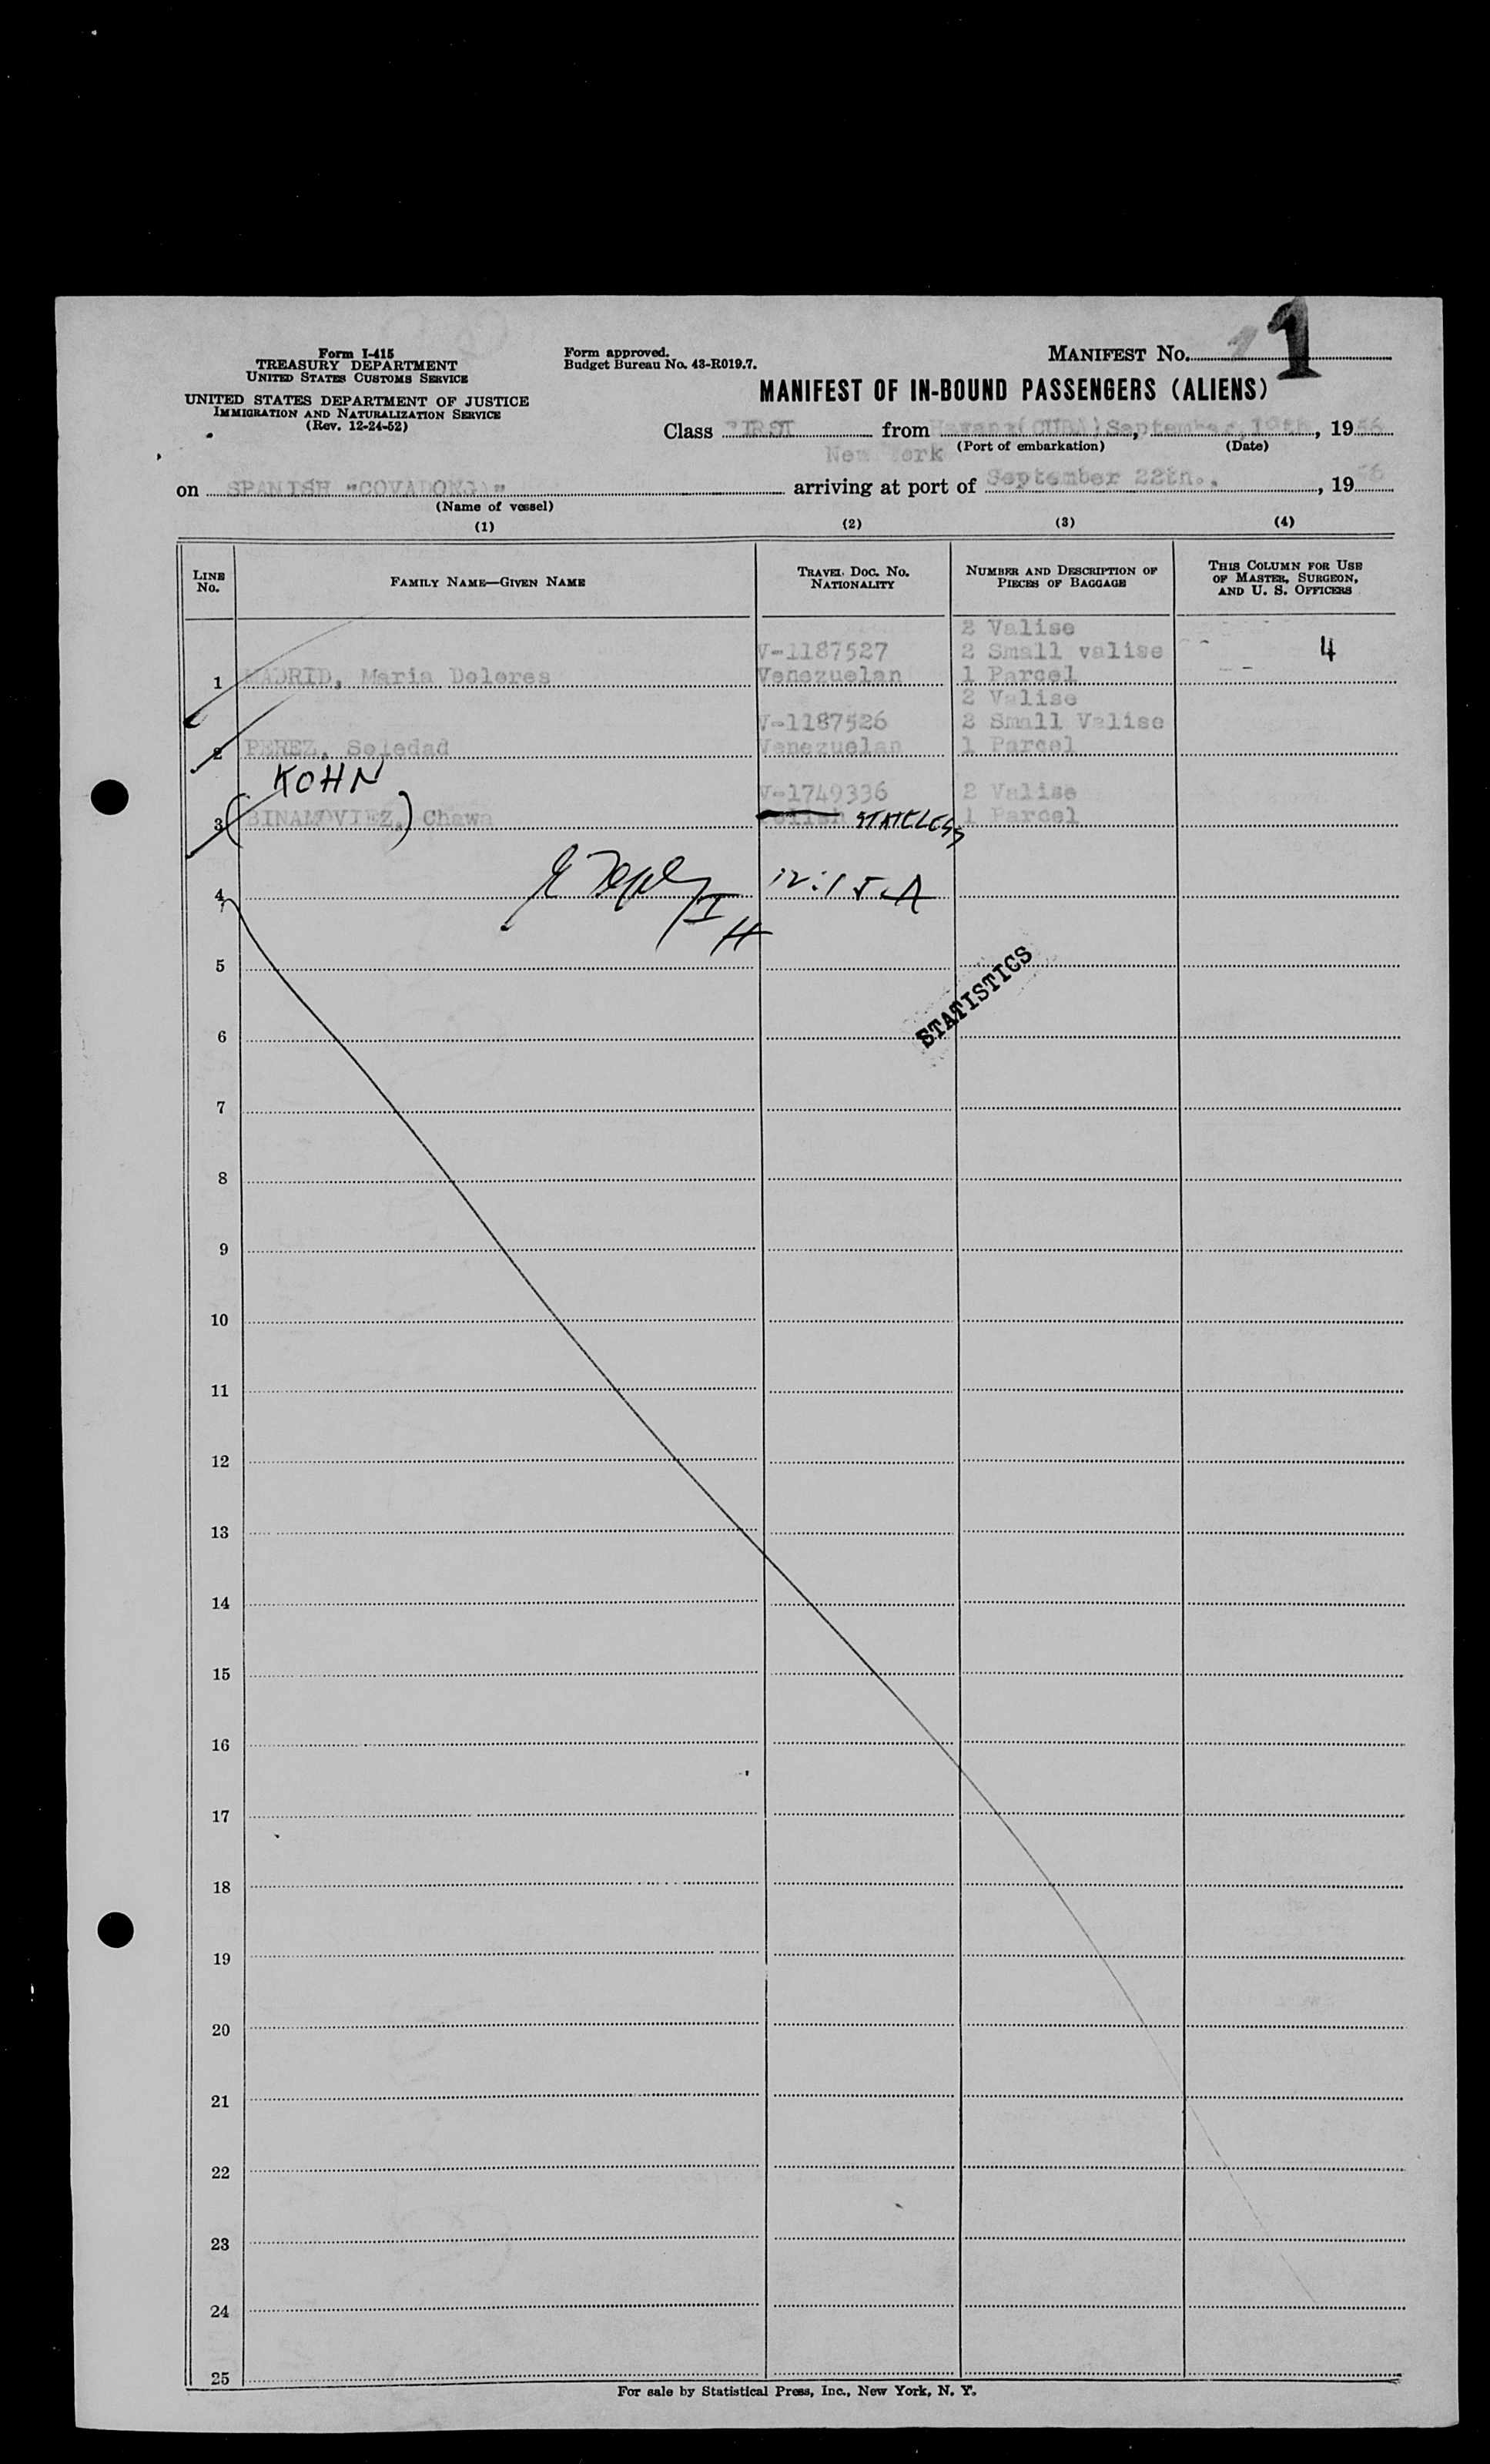 Form I-415
TREASURY DEPARTMENT
UNITED STATES CUSTOMS SERVICE
UNITED STATES DEPARTMENT OF JUSTICE
IMMIGRATION AND NATURALIZATION SERVICE
(Rev. 12-24-52)
Form approved.
Budget Bureau No. 43-R019.7.
MANIFEST No. 1 1
MANIFEST OF IN-BOUND PASSENGERS (ALIENS)
Class FIRST from Havana(CUBA) September 19th, 1956
(Port of embarkation) (Date)
New York
on SPANISH "COVADONGA" arriving at port of September 22th., 1956
(Name of vessel)
(1) (2) (3) (4)
LINE No. FAMILY NAME—GIVEN NAME TRAVEL DOC. No. NATIONALITY NUMBER AND DESCRIPTION OF PIECES OF BAGGAGE THIS COLUMN FOR USE OF MASTER, SURGEON, AND U. S. OFFICERS
2 Valise
V-1187527 2 Small valise 4
1 MADRID, Maria Dolores Venezuelan 1 Parcel
2 Valise
V-1187526 2 Small Valise
2 PEREZ, Soledad Venezuelan 1 Parcel
KOHN
V-1749336 2 Valise
3 (BINAMOVIEZ,) Chawa Polish STATELESS 1 Parcel
4
5
STATISTICS
6
7
8
9
10
11
12
13
14
15
16
17
18
19
20
21
22
23
24
25
For sale by Statistical Press, Inc., New York, N. Y.